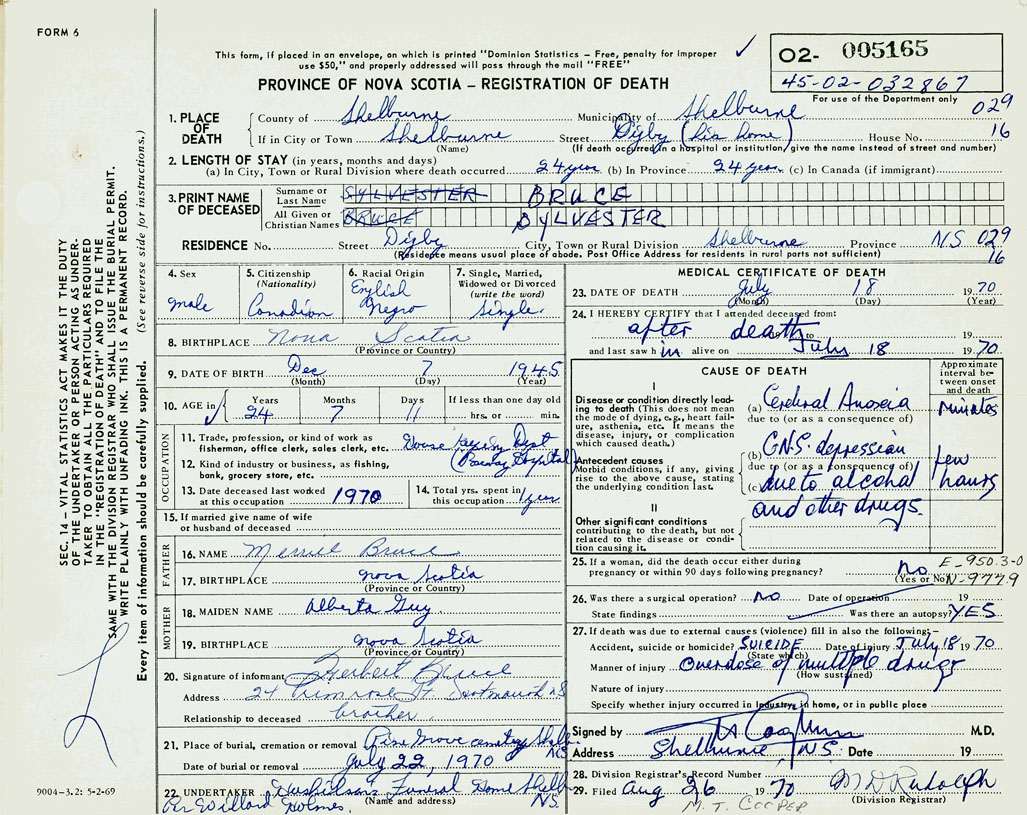 FORM 6
This form, if placed in an envelope, on which is printed "Dominion Statistics – Free, penalty for improper
use $50," and properly addressed will pass through the mail "FREE"
✓
O2- 005165
45-02-032867
For use of the Department only
PROVINCE OF NOVA SCOTIA – REGISTRATION OF DEATH
029
16
1. PLACE OF DEATH
County of Shelburne Municipality of Shelburne
If in City or Town Shelburne Street Digby (his home) House No.
(Name) (If death occurred in a hospital or institution, give the name instead of street and number)
2. LENGTH OF STAY (in years, months and days)
(a) In City, Town or Rural Division where death occurred 24 year (b) In Province 24 year (c) In Canada (if immigrant)
3. PRINT NAME OF DECEASED
Surname or Last Name SYLVESTER BRUCE
All Given or Christian Names BRUCE SYLVESTER
RESIDENCE No. Street Digby City, Town or Rural Division Shelburne Province N.S. 029
16
(Residence means usual place of abode. Post Office Address for residents in rural parts not sufficient)
4. Sex
male
5. Citizenship
(Nationality)
Canadian
6. Racial Origin
English
Negro
7. Single, Married,
Widowed or Divorced
(write the word)
Single.
8. BIRTHPLACE Nova Scotia
(Province or Country)
9. DATE OF BIRTH Dec 7 1945
(Month) (Day) (Year)
10. AGE in Years Months Days If less than one day old
24 7 11 hrs. or min.
OCCUPATION
11. Trade, profession, or kind of work as
fisherman, office clerk, sales clerk, etc. House Dept
12. Kind of industry or business, as fishing,
bank, grocery store, etc. Hospital)
13. Date deceased last worked
at this occupation 1970
14. Total yrs. spent in
this occupation 1 year
15. If married give name of wife
or husband of deceased
FATHER
16. NAME Merrill Bruce
17. BIRTHPLACE Nova Scotia
(Province or Country)
MOTHER
18. MAIDEN NAME Alberta Guy
19. BIRTHPLACE Nova Scotia
(Province or Country)
20. Signature of informant Herbert Bruce
Address 24 Primrose St. Dartmouth NS
Relationship to deceased brother
21. Place of burial, cremation or removal Pine Grove cemetery Shelb
NS
Date of burial or removal July 22, 1970
22. UNDERTAKER Funeral Home Shelb
(Name and address) NS.
Per Willard Holmes.
MEDICAL CERTIFICATE OF DEATH
23. DATE OF DEATH July 18 1970
(Month) (Day) (Year)
24. I HEREBY CERTIFY that I attended deceased from:
after death to 19
and last saw him alive on July 18 1970
CAUSE OF DEATH
Approximate
interval be-
tween onset
and death
I
Disease or condition directly lead-
ing to death (This does not mean
the mode of dying, e.g., heart fail-
ure, asthenia, etc. It means the
disease, injury, or complication
which caused death.)
(a) Cerebral Anoxia Minutes
due to (or as a consequence of)
Antecedent causes
Morbid conditions, if any, giving
rise to the above cause, stating
the underlying condition last.
(b) C.N.S. depression few
due to (or as a consequence of)
(c) due to alcohol hours
and other drugs.
II
Other significant conditions
contributing to the death, but not
related to the disease or condi-
tion causing it.
25. If a woman, did the death occur either during
pregnancy or within 90 days following pregnancy? No
(Yes or No)
E-950.3-0
N-977.9
26. Was there a surgical operation? No Date of operation 19
State findings Was there an autopsy? YES
27. If death was due to external causes (violence) fill in also the following:–
Accident, suicide or homicide? SUICIDE Date of injury July 18 1970
(State which)
Manner of injury Overdose of multiple drugs
(How sustained)
Nature of injury
Specify whether injury occurred in industry, in home, or in public place
Signed by M.D.
Address Shelburne N.S. Date 19
28. Division Registrar's Record Number
29. Filed Aug 26 1970 M D Rudolph
(Division Registrar)
M. T. COOPER
SEC. 14 – VITAL STATISTICS ACT MAKES IT THE DUTY
OF THE UNDERTAKER OR PERSON ACTING AS UNDER-
TAKER TO OBTAIN ALL THE PARTICULARS REQUIRED
IN THE "REGISTRATION OF DEATH" AND TO FILE THE
SAME WITH THE DIVISION REGISTRAR WHO SHALL ISSUE THE BURIAL PERMIT.
WRITE PLAINLY WITH UNFADING INK. THIS IS A PERMANENT RECORD.
Every item of information should be carefully supplied. (See reverse side for instructions.)
9004-3.2: 5-2-69